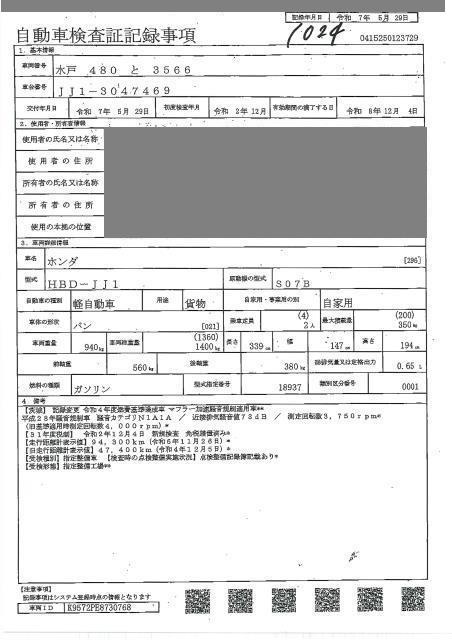 記録年月日 令和 7年 5月 29日
自動車検査証記録事項
1024
0415250123729
1. 基本情報
車両番号 水戸 480 と 3566
車台番号 JJ1-3047469
交付年月日 令和 7年 5月 29日 初度検査年月 令和 2年 12月 有効期間の満了する日 令和 8年 12月 4日
2. 使用者・所有者情報
使用者の氏名又は名称
使用者の住所
所有者の氏名又は名称
所有者の住所
使用の本拠の位置
3. 車両詳細情報
車名 ホンダ [296]
型式 HBD-JJ1 原動機の型式 S07B
自動車の種別 軽自動車 用途 貨物 自家用・事業用の別 自家用
車体の形状 バン [021] 乗車定員 (4) 2人 最大積載量 (200) 350kg
車両重量 940kg 車両総重量 (1360) 1400kg 長さ 339cm 幅 147cm 高さ 194cm
前軸重 560kg 後軸重 380kg 総排気量又は定格出力 0.65L
燃料の種類 ガソリン 型式指定番号 18937 類別区分番号 0001
4. 備考
【表頭】 記録変更 令和4年度燃費基準達成車 マフラー加速騒音規制適用車**
平成28年騒音規制車 騒音カテゴリN1A1A / 近接排気騒音値73dB / 測定回転数3,750rpm*
(旧基準適用時測定回転数4,000rpm)*
【31年度税制】 令和2年12月4日 新規検査 免税措置済み*
【走行距離計表示値】94,300km(令和6年11月26日)*
【旧走行距離計表示値】47,400km(令和4年12月5日)
【受検種別】指定整備車 【検査時の点検整備実施状況】点検整備記録簿記載あり*
【受検形態】指定整備工場**
【注意事項】
記録事項はシステム登録時点の情報となります
車両ID K9572PE8730768